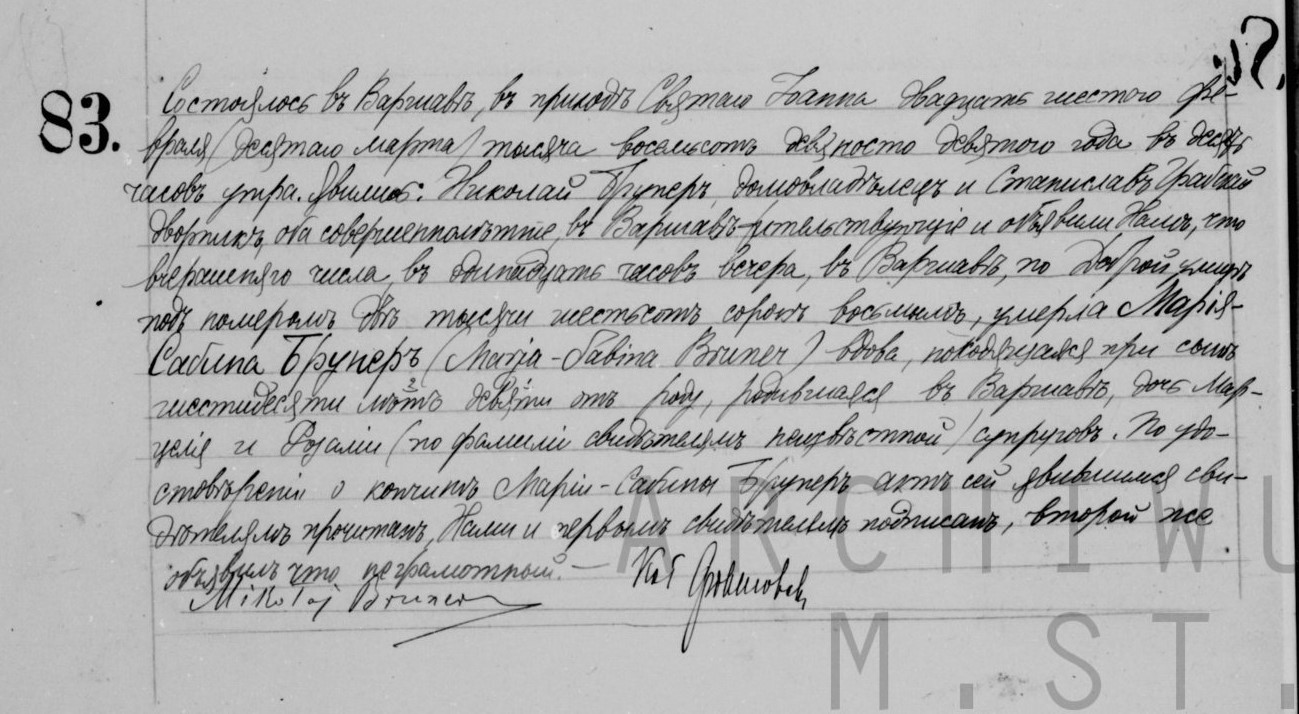 83.
Состоялось въ Варшавѣ, въ приходѣ Святаго Іоанна двадцать шестого фе-
враля (десятаго марта) тысяча восемьсотъ девяносто девятого года въ десять
часовъ утра. Явились: Николай Брунеръ, домовладѣлецъ и Станиславъ
дворникъ, оба совершеннолѣтніе, въ Варшавѣ жительствующіе и объявили Намъ, что
вчерашняго числа, въ одинадцать часовъ вечера, въ Варшавѣ, по Доброй улицѣ
подъ номеромъ двѣ тысячи шестьсотъ сорокъ восьмымъ, умерла Марія-
Сабина Брунеръ (Marja-Sabina Bruner) вдова, находящаяся при сынѣ
шестидесяти лѣтъ девяти отъ роду, родившаяся въ Варшавѣ, дочь Мар-
целія и Розаліи (по фамиліи свидѣтелямъ неизвѣстной) супруговъ. По удо-
стовѣреніи о кончинѣ Маріи-Сабины Брунеръ актъ сей явившимся сви-
дѣтелямъ прочитанъ, Нами и первымъ свидѣтелемъ подписанъ, второй же
объявилъ что неграмотный. —
Mikołaj Bruner
ARCHIWU
M.ST.